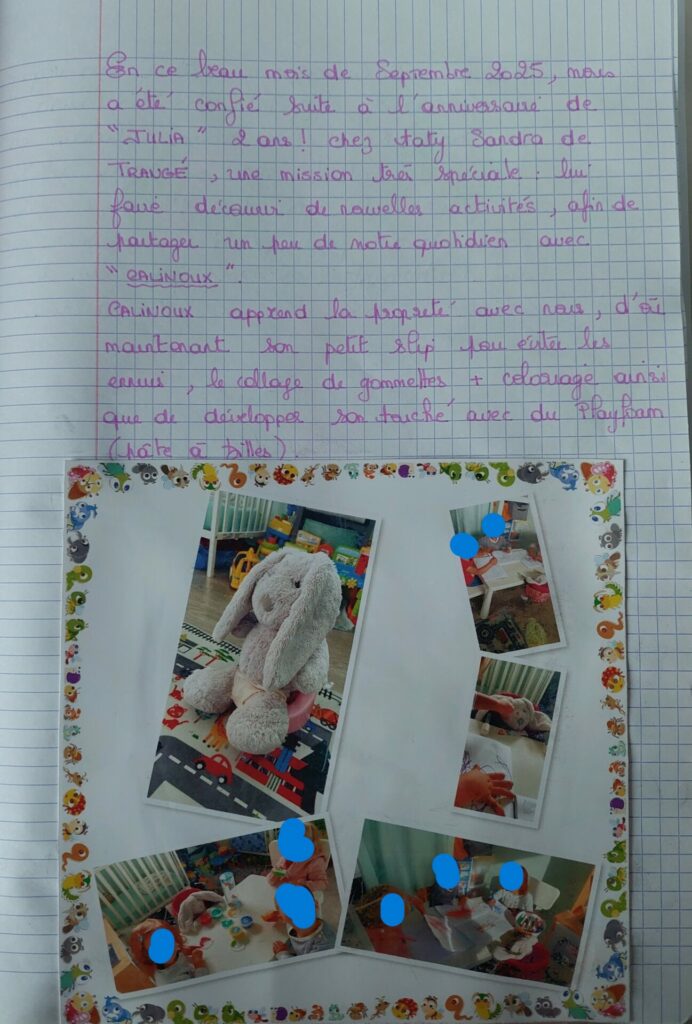 En ce beau mois de Septembre 2025, nous
a été confié suite à l'anniversaire de
"JULIA" 2 ans! chez taty Sandra de
TRANGÉ, une mission très spéciale : lui
faire découvrir de nouvelles activités, afin de
partager un peu de notre quotidien avec
"CALINOUX".
CALINOUX apprend la propreté avec nous, d'où
maintenant son petit slip pour éviter les
ennuis, le collage de gommettes + coloriage ainsi
que de développer son touché avec du Playfoam
(pâte à billes).